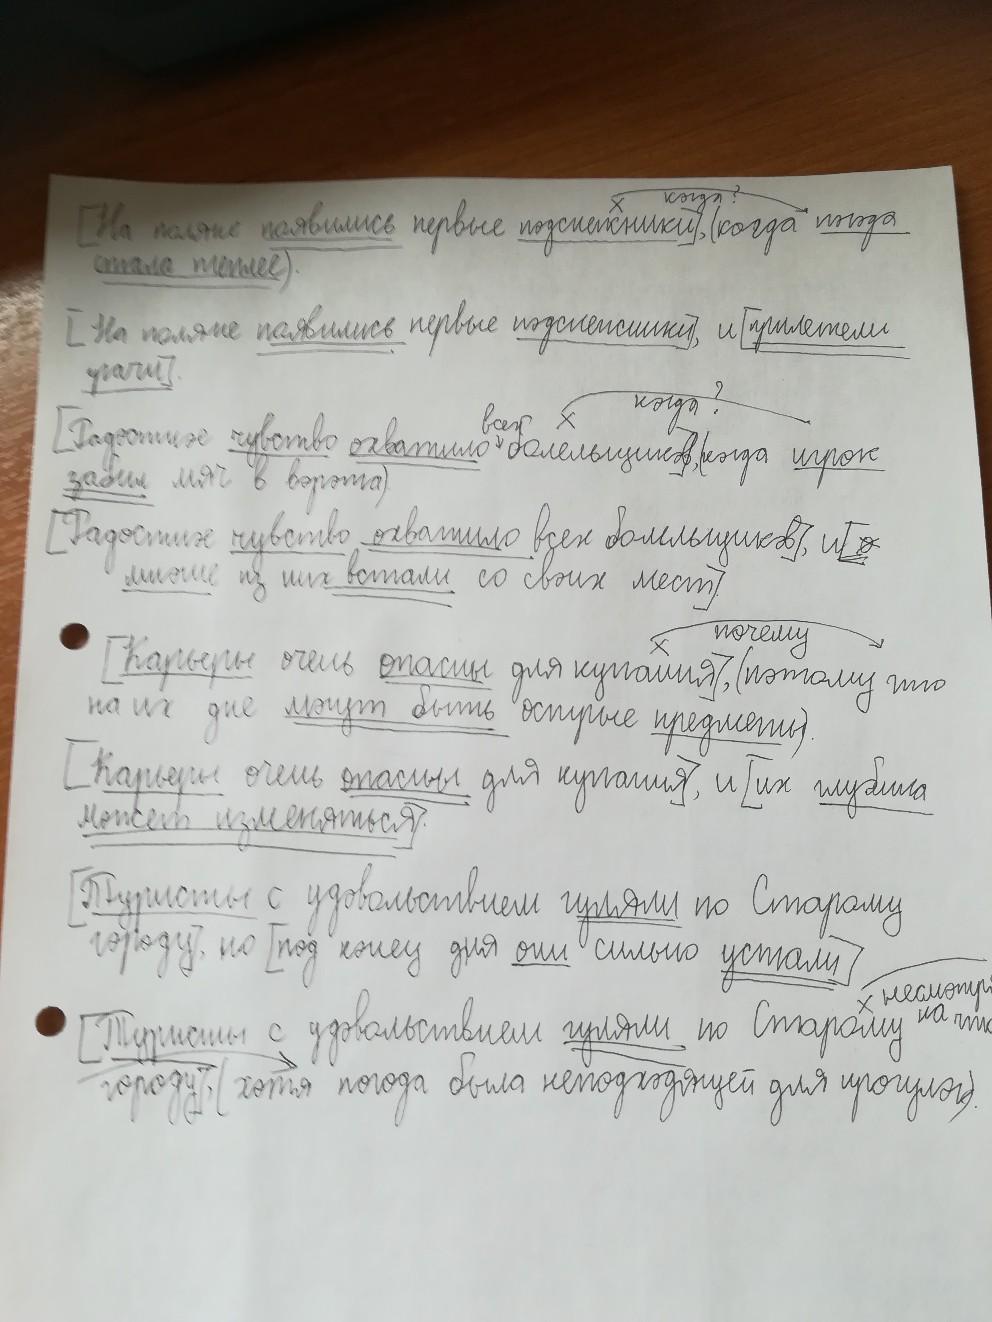 когда?
[На поляне появились первые подснежники], (когда погода
стала теплее).
[На поляне появились первые подснежники], и [прилетели
грачи].
когда?
всех
[Радостное чувство охватило болельщиков], (когда игрок
забил мяч в ворота)
[Радостное чувство охватило всех болельщиков], и [
многие из них встали со своих мест].
почему
[Карьеры очень опасны для купания], (потому что
на их дне могут быть острые предметы).
[Карьеры очень опасны для купания], и [их глубина
может изменяться].
[Туристы с удовольствием гуляли по Старому
городу], но [под конец дня они сильно устали]
несмотря
на что
[Туристы с удовольствием гуляли по Старому
городу], (хотя погода была неподходящей для прогулок).